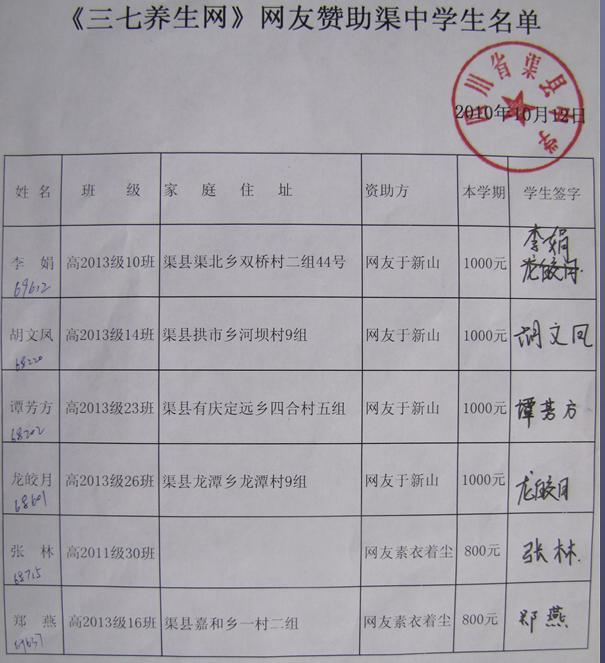 《三七养生网》网友赞助渠中学生名单
四川省渠县中学
2010年10月12日
姓 名 班 级 家 庭 住 址 资助方 本学期 学生签字
李 娟 高2013级10班 渠县渠北乡双桥村二组44号 网友于新山 1000元 李娟
龙皎月
69612
胡文凤 高2013级14班 渠县拱市乡河坝村9组 网友于新山 1000元 胡文凤
68220
谭芳方 高2013级23班 渠县有庆定远乡四合村五组 网友于新山 1000元 谭芳方
68202
龙皎月 高2013级26班 渠县龙潭乡龙潭村9组 网友于新山 1000元 龙皎月
68601
张 林 高2011级30班 网友素衣着尘 800元 张林
68715
郑 燕 高2013级16班 渠县嘉和乡一村二组 网友素衣着尘 800元 郑燕
69637